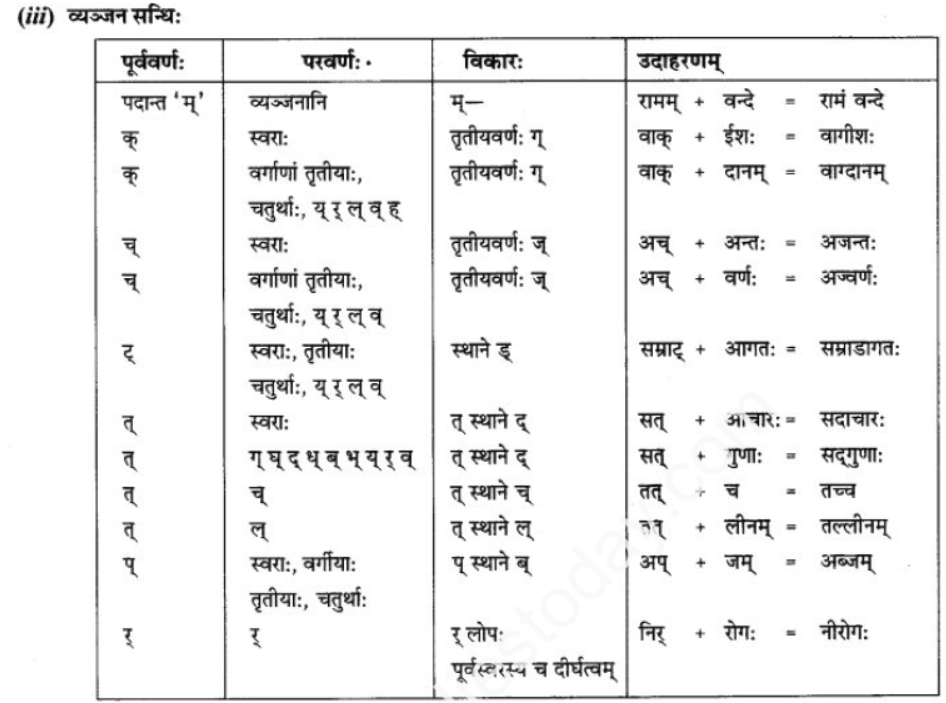 (iii) व्यञ्जन सन्धिः
पूर्ववर्णः परवर्णः · विकारः उदाहरणम्
पदान्त ‘म्’ व्यञ्जनानि म्— रामम् + वन्दे = रामं वन्दे
क् स्वराः तृतीयवर्णः ग् वाक् + ईशः = वागीशः
क् वर्गाणां तृतीयाः, तृतीयवर्णः ग् वाक् + दानम् = वाग्दानम्
चतुर्थाः, य् र् ल् व् ह्
च् स्वराः तृतीयवर्णः ज् अच् + अन्तः = अजन्तः
च् वर्गाणां तृतीयाः, तृतीयवर्णः ज् अच् + वर्णः = अज्वर्णः
चतुर्थाः, य् र् ल् व्
ट् स्वराः, तृतीयाः स्थाने ड् सम्राट् + आगतः = सम्राडागतः
चतुर्थाः, य् र् ल् व्
त् स्वराः त् स्थाने द् सत् + आचारः = सदाचारः
त् ग् घ् द् ध् ब् भ् य् र् व् त् स्थाने द् सत् + गुणाः = सद्‌गुणाः
त् च् त् स्थाने च् तत् + च = तच्च
त् ल् त् स्थाने ल् तत् + लीनम् = तल्लीनम्
प् स्वराः, वर्गीयाः प् स्थाने ब् अप् + जम् = अब्जम्
तृतीयाः, चतुर्थाः
र् र् र् लोपः निर् + रोगः = नीरोगः
पूर्वस्वरस्य च दीर्घत्वम्